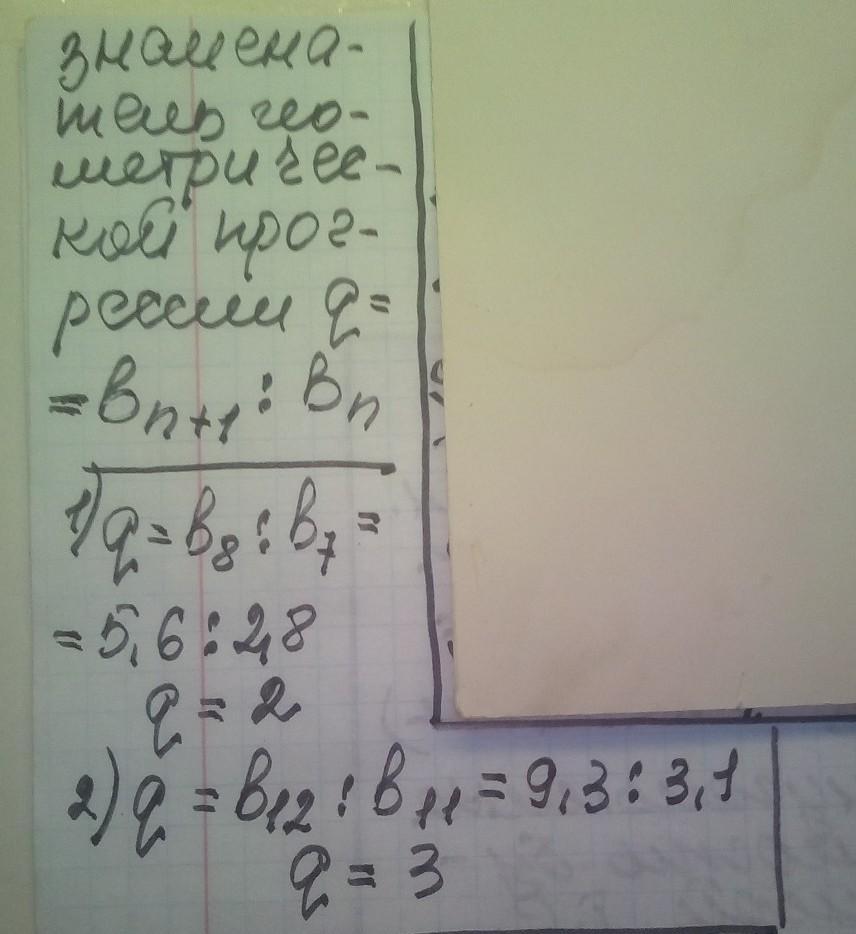 знамена-
тель гео-
метричес-
кой прог-
рессии q =
= bₙ₊₁ : bₙ
1) q = b₈ : b₇ =
= 5,6 : 2,8
q = 2
2) q = b₁₂ : b₁₁ = 9,3 : 3,1
q = 3